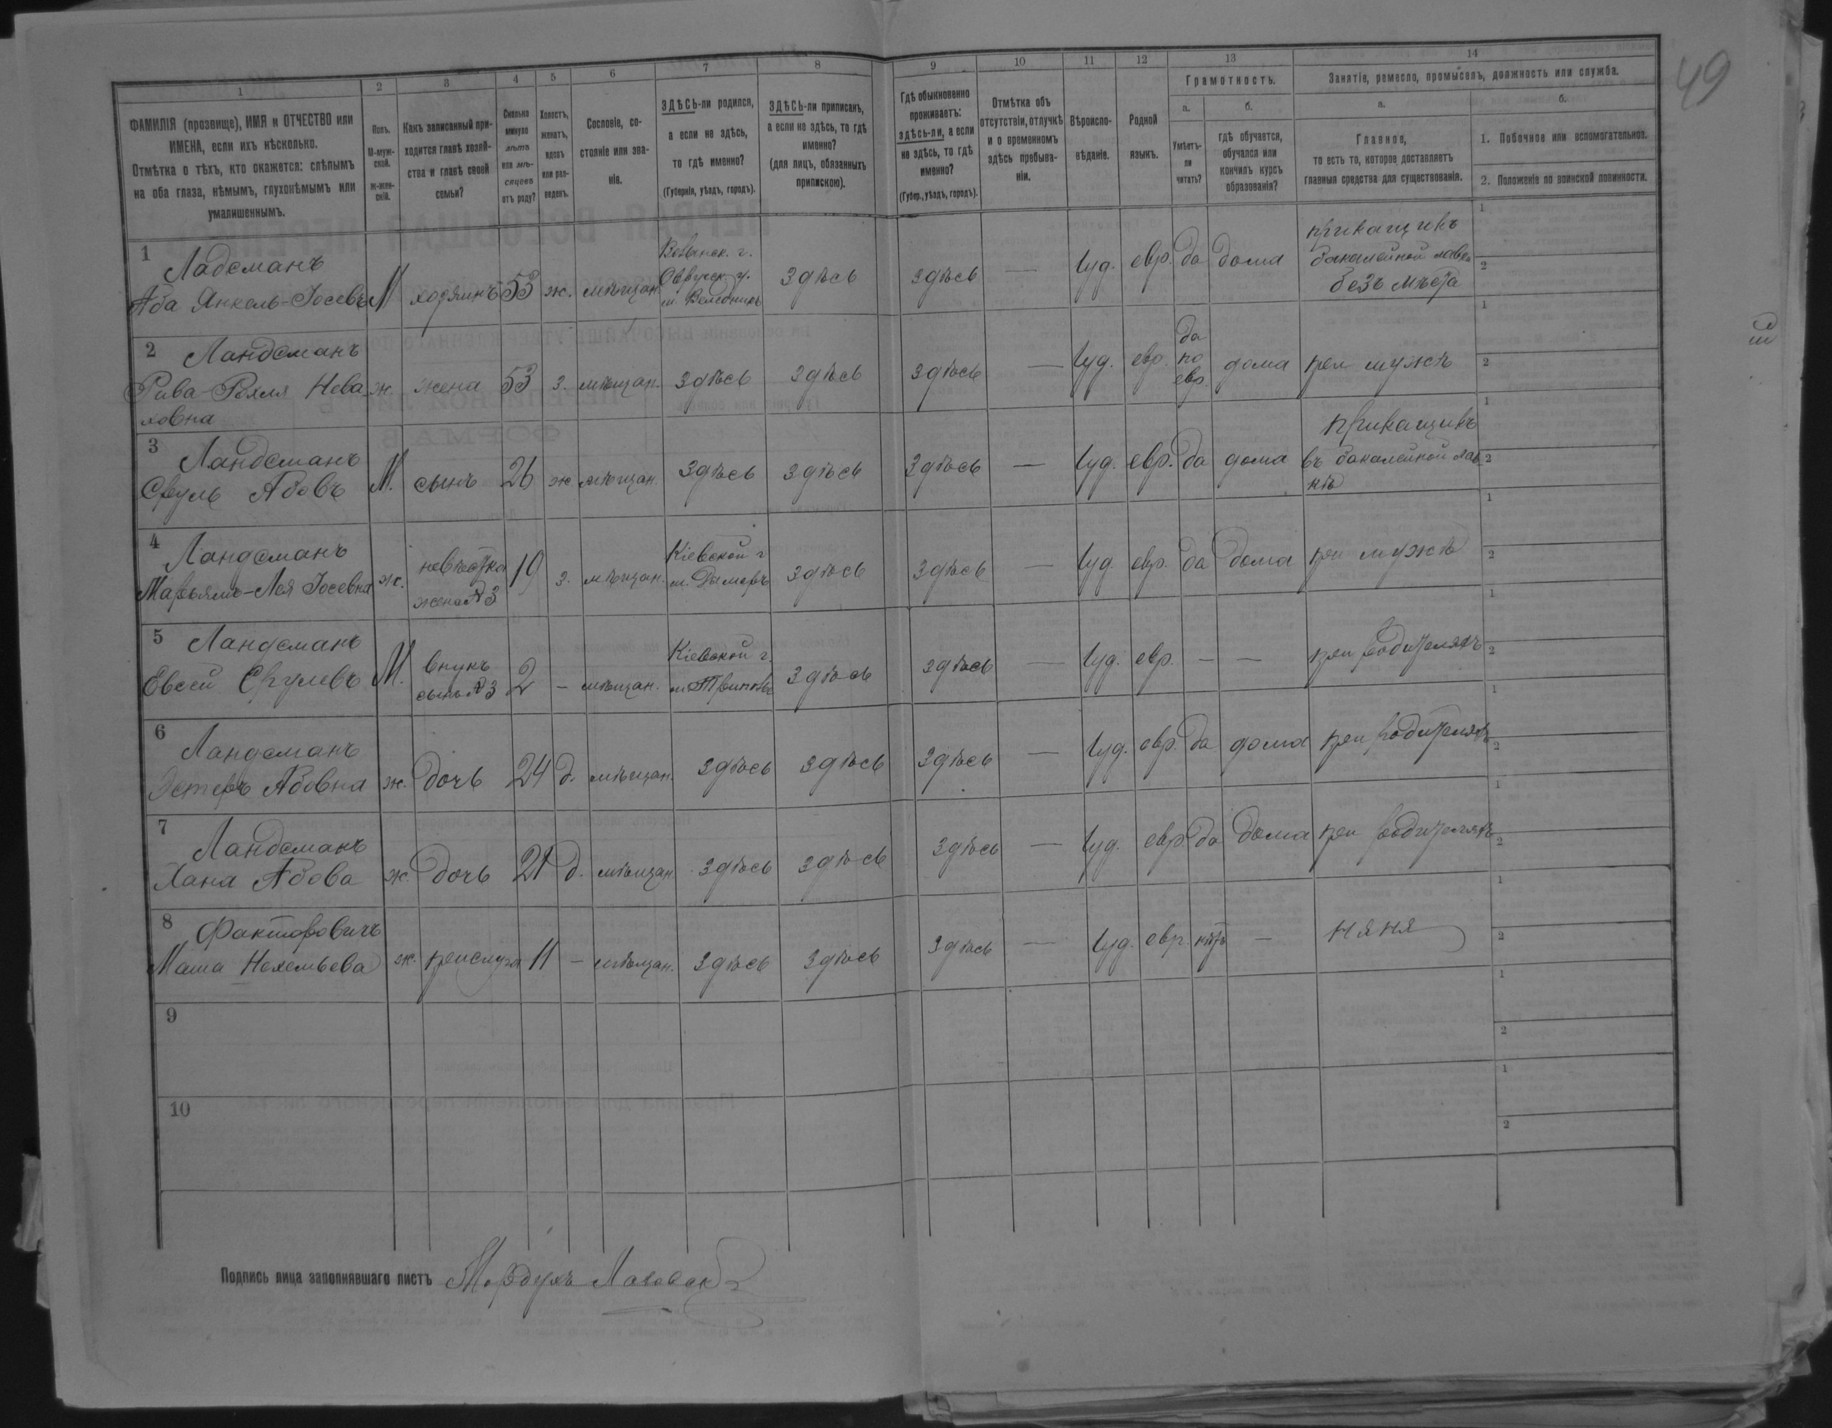 49
1 2 3 4 5 6 7 8 9 10 11 12 13 14
ФАМИЛІЯ (прозвище), ИМЯ и ОТЧЕСТВО или
ИМЕНА, если ихъ нѣсколько.
Отмѣтка о тѣхъ, кто окажется: слѣпымъ
на оба глаза, нѣмымъ, глухонѣмымъ или
умалишеннымъ.
Полъ.
М-муж-
ской.
ж-жен-
скій.
Какъ записанный при-
ходится главѣ хозяй-
ства и главѣ своей
семьи?
Сколько
минуло
лѣтъ
или мѣ-
сяцевъ
отъ роду?
Холостъ,
женатъ,
вдовъ
или раз-
веденъ.
Сословіе, со-
стояніе или зва-
ніе.
ЗДѢСЬ-ли родился,
а если не здѣсь,
то гдѣ именно?
(Губернія, уѣздъ, городъ).
ЗДѢСЬ-ли приписанъ,
а если не здѣсь, то гдѣ
именно?
(для лицъ, обязанныхъ
припискою).
Гдѣ обыкновенно
проживаетъ:
здѣсь-ли, а если
не здѣсь, то гдѣ
именно?
(Губер., уѣздъ, городъ).
Отмѣтка объ
отсутствіи, отлучкѣ
и о временномъ
здѣсь пребыва-
ніи.
Вѣроиспо-
вѣданіе.
Родной
языкъ.
Грамотность.
а.
Умѣетъ-
ли
читать?
б.
гдѣ обучается,
обучался или
кончилъ курсъ
образованія?
Занятіе, ремесло, промыселъ, должность или служба.
а.
Главное,
то есть то, которое доставляетъ
главныя средства для существованія.
б.
1. Побочное или вспомогательное.
2. Положеніе по воинской повинности.
1 Ладсманъ
Аба Янкель-Іосевъ М хозяинъ 53 ж. мѣщан.
Волынск. г.
Овручск. у.
здѣсь здѣсь — Іуд. евр. да дома
прикащикъ
бакалейной лавки
безъ мѣста
1
2
2 Ландсманъ
Рива-Рохля Неваховна ж. жена 53 з. мѣщан. здѣсь здѣсь здѣсь — Іуд. евр. да по евр. дома при мужѣ
1
2
3 Ландсманъ
Сруль Абовъ М. сынъ 26 ж мѣщан. здѣсь здѣсь здѣсь — Іуд. евр. да дома
прикащикъ
въ бакалейной лав
кѣ
1
2
4 Ландсманъ
Марьямъ-Лея Іосевна ж. невѣстка
жена №3 19 з. мѣщан.
Кіевской г.
м. Дымеръ здѣсь здѣсь — Іуд. евр. да дома при мужѣ
1
2
5 Ландсманъ
Евсей Срулевъ М. внукъ
сынъ №3 2 — мѣщан.
Кіевской г.
здѣсь здѣсь — Іуд. евр. — — при родителяхъ
1
2
6 Ландсманъ
Эстеръ Абовна ж. дочь 24 д. мѣщан. здѣсь здѣсь здѣсь — Іуд. евр. да дома при родителяхъ
1
2
7 Ландсманъ
Хана Абова ж. дочь 21 д. мѣщан. здѣсь здѣсь здѣсь — Іуд. евр да дома при родителяхъ
1
2
8 Факторовичъ
Маша Нехемьева ж. прислуга 11 — мѣщан. здѣсь здѣсь здѣсь — Іуд. евр нѣтъ — няня
1
2
9
1
2
10
1
2
Подпись лица заполнявшаго листъ